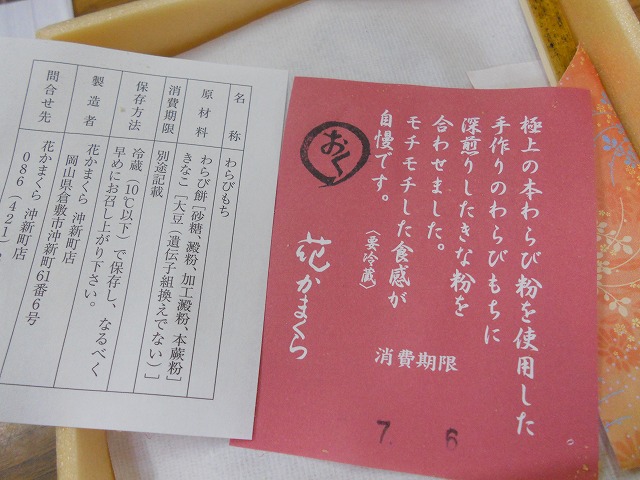 名称 わらびもち
原材料 わらび餅［砂糖、澱粉、加工澱粉、本蕨粉］
きなこ［大豆（遺伝子組換えでない）］
消費期限 別途記載
保存方法 冷蔵（10℃以下）で保存し、なるべく
早めにお召し上がり下さい。
製造者 花かまくら 沖新町店
岡山県倉敷市沖新町61番6号
問合せ先 花かまくら 沖新町店
086（421）
極上の本わらび粉を使用した
手作りのわらびもちに
深煎りしたきな粉を
合わせました。
モチモチした食感が
自慢です。
〈要冷蔵〉
おく
花かまくら
消費期限
7. 6